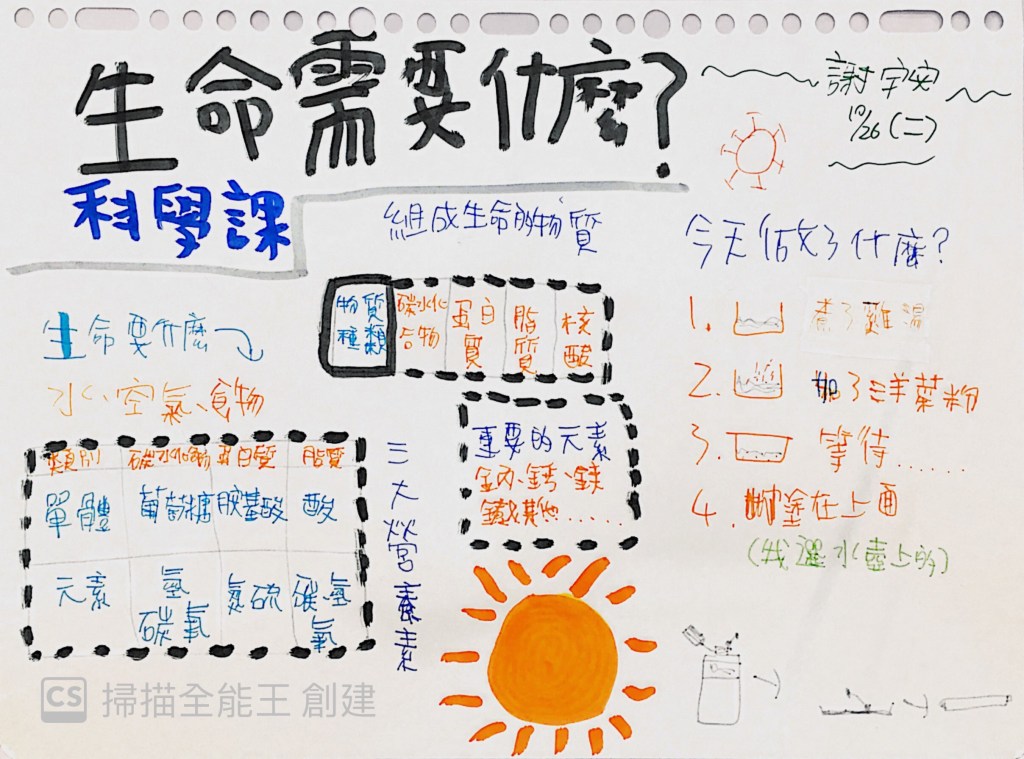 生命需要什麼?
謝宇安
10/26(二)
科學課
組成生命的物質
今天做了什麼?
生命要什麼
水、空氣、食物
物質種類 碳水化合物 蛋白質 脂質 核酸
重要的元素
鈉、鈣、鎂
鐵、其他......
類別 碳水化合物 蛋白質 脂質
單體 葡萄糖 胺基酸 酸
元素 氫碳氧 氮硫 碳、氫氧
三大營養素
1. 煮了雞湯
2. 加了洋菜粉
3. 等待......
4. 塗在上面
(我選水壺上的)
CS 掃描全能王 創建